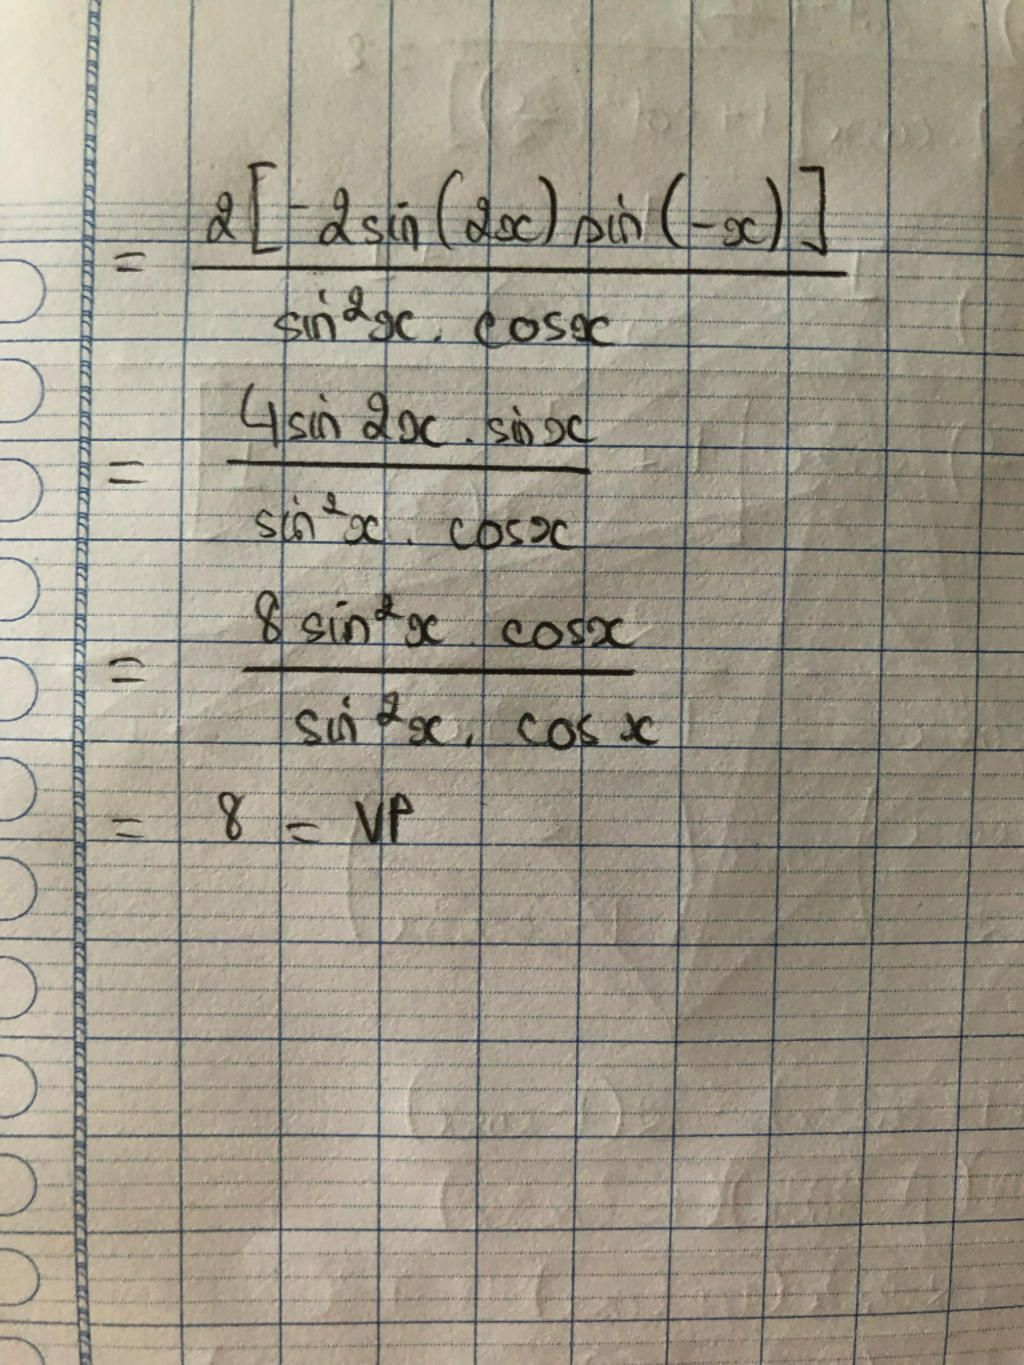 = 2[-2sin(2x)sin(-x)] / sin²x . cosx
= 4sin2x . sinx / sin²x . cosx
= 8sin²x . cosx / sin²x . cosx
= 8 = VP